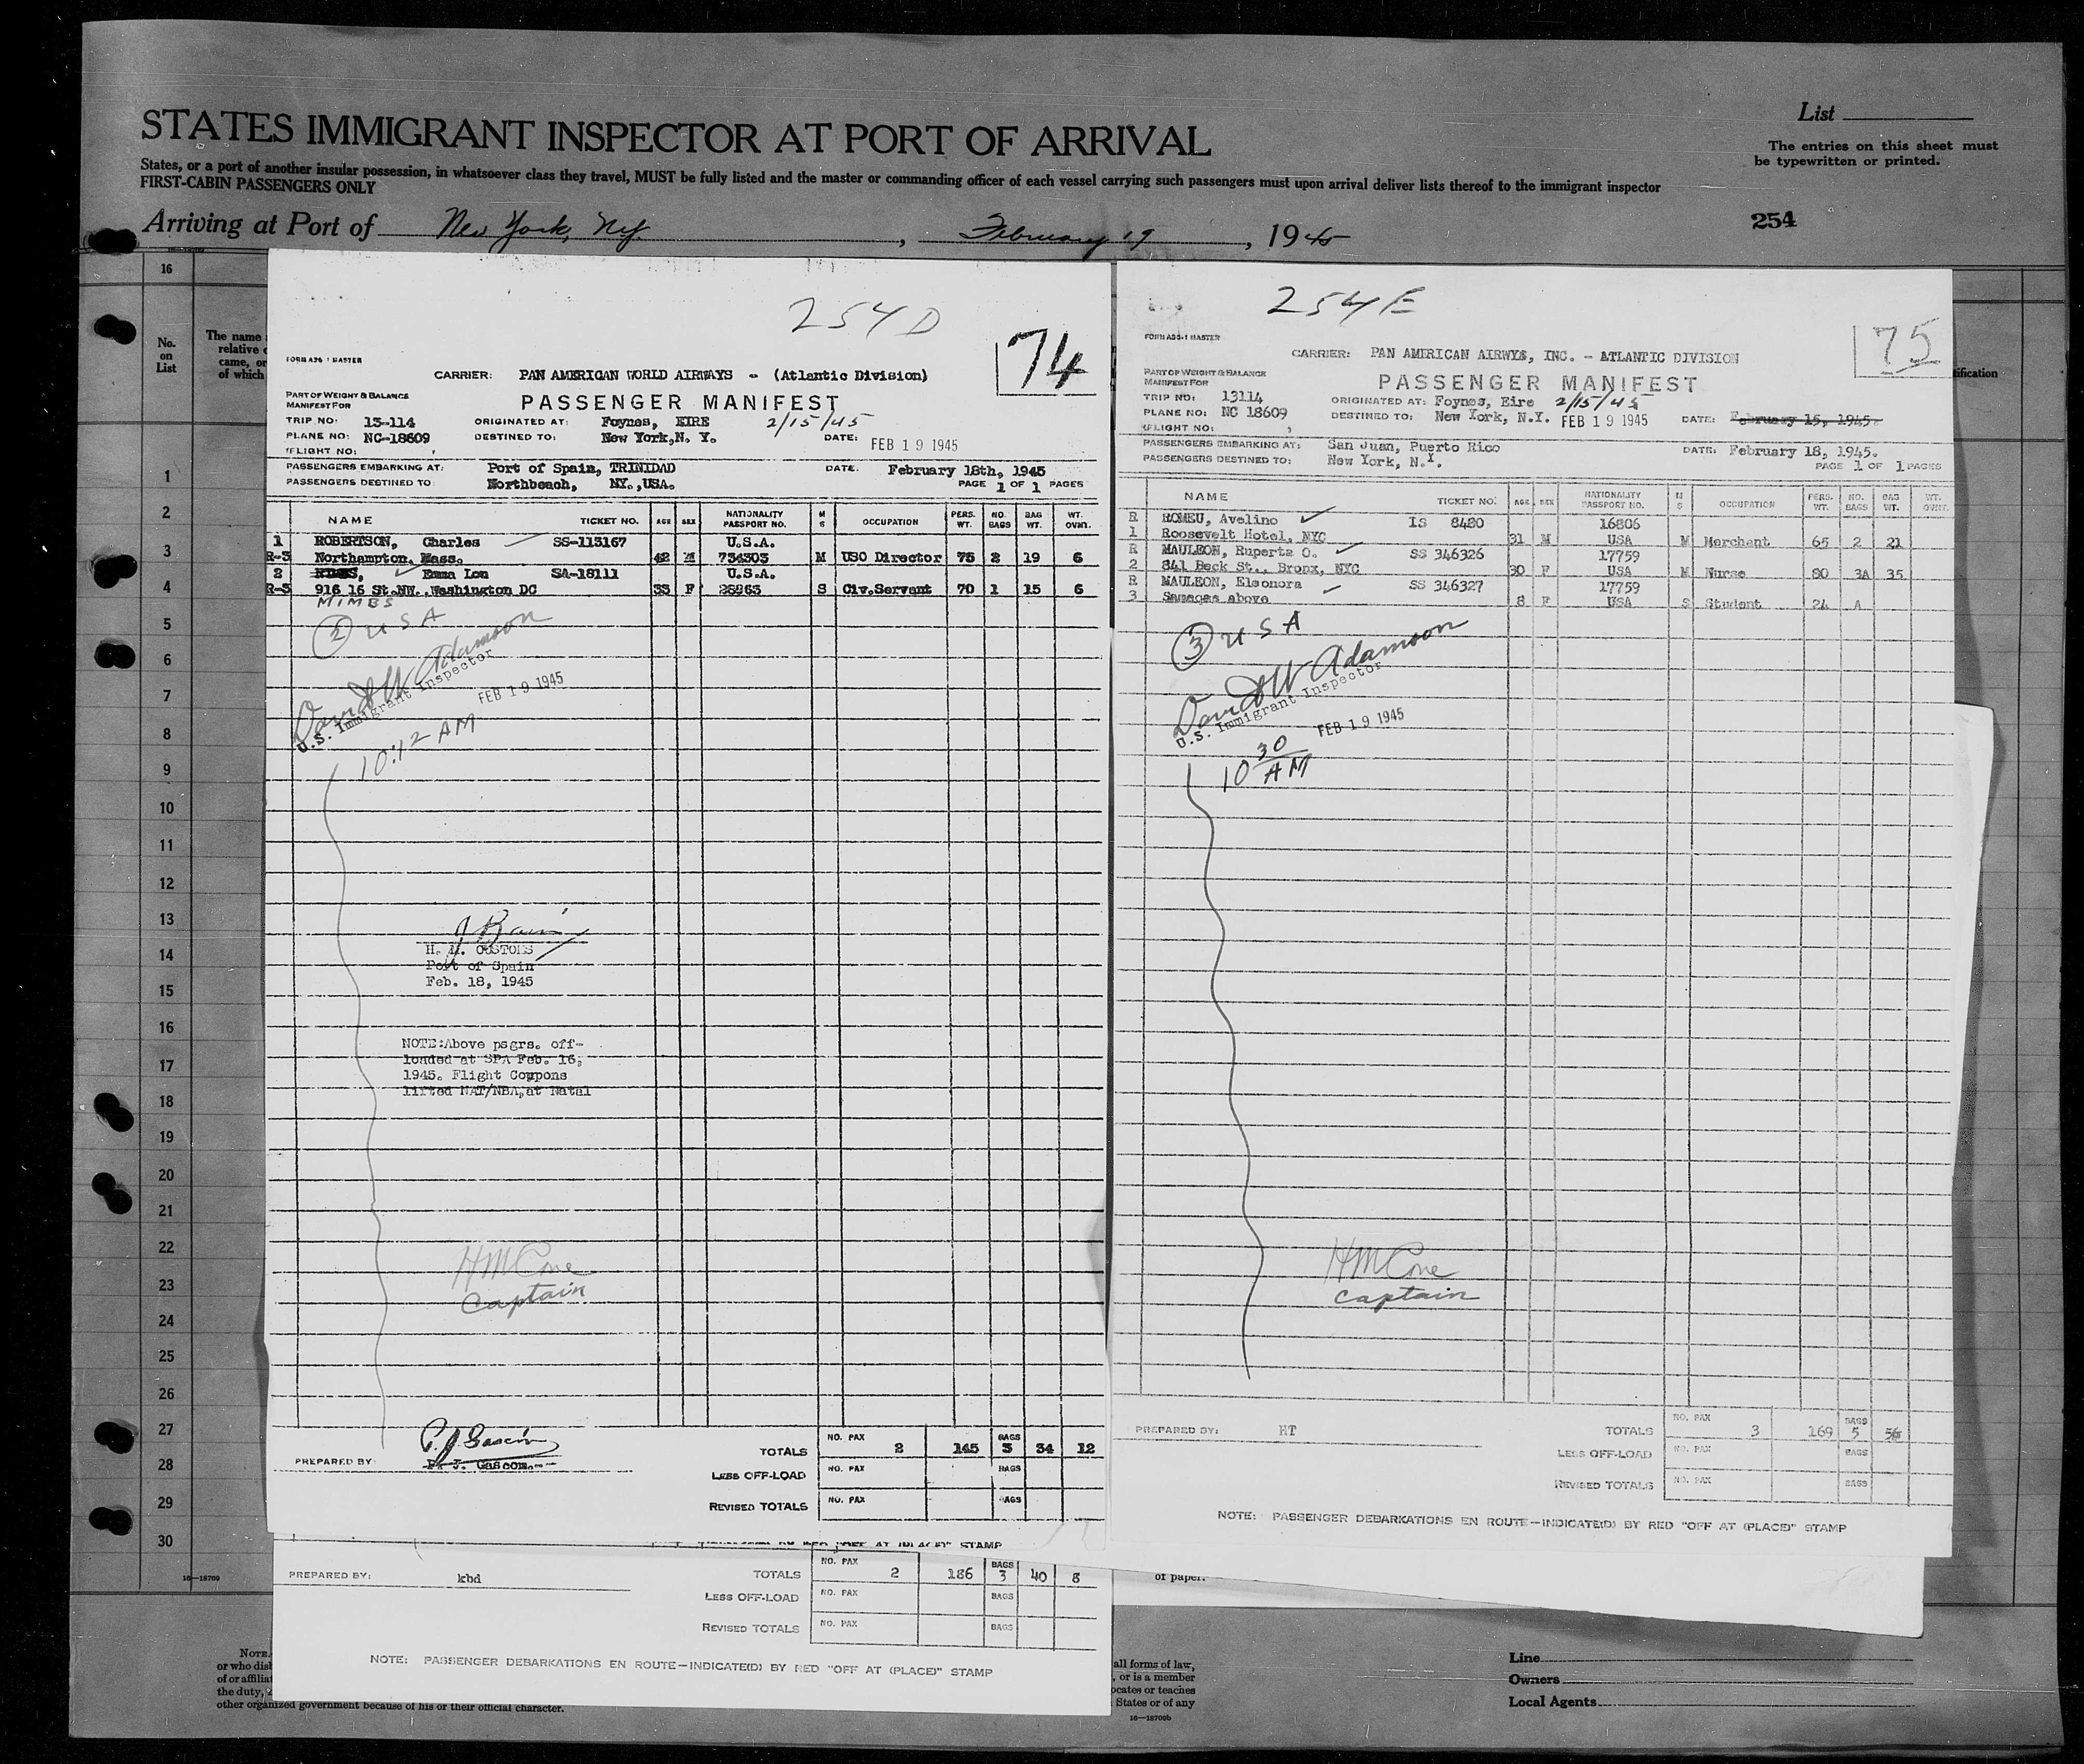 STATES IMMIGRANT INSPECTOR AT PORT OF ARRIVAL
List
The entries on this sheet must
be typewritten or printed.
States, or a port of another insular possession, in whatsoever class they travel, MUST be fully listed and the master or commanding officer of each vessel carrying such passengers must upon arrival deliver lists thereof to the immigrant inspector
FIRST-CABIN PASSENGERS ONLY
Arriving at Port of New York, N.Y. , February 19 , 1945
254
16
No.
on
List
The name
relative
came, or
of which
tification
1
2
3
4
5
6
7
8
9
10
11
12
13
14
15
16
17
18
19
20
21
22
23
24
25
26
27
28
29
30
16—18709
254D
74
CARRIER: PAN AMERICAN WORLD AIRWAYS - (Atlantic Division)
PART OF WEIGHT & BALANCE
MANIFEST FOR
PASSENGER MANIFEST
TRIP NO: 13-114 ORIGINATED AT: Foynes, EIRE 2/15/45
PLANE NO: NC-18609 DESTINED TO: New York,N. Y. DATE: FEB 19 1945
FLIGHT NO:
PASSENGERS EMBARKING AT: Port of Spain, TRINIDAD DATE: February 18th, 1945
PASSENGERS DESTINED TO: Northbeach, NY.,USA. PAGE 1 OF 1 PAGES
NAME TICKET NO. AGE SEX NATIONALITY PASSPORT NO. M S OCCUPATION PERS. WT. NO. BAGS BAG WT. WT. OVWT.
1 ROBERTSON, Charles SS-113167 U.S.A.
R-3 Northampton, Mass. 42 M 734303 M USO Director 75 2 19 6
2 Emma Lou SA-18111 U.S.A.
R-3 916 16 St.NW.,Washington DC 33 F 28963 S Civ.Servant 70 1 15 6
MIMBS
2 USA
David W Adamson
U.S. Immigrant Inspector
FEB 19 1945
10:12 AM
H. M. CUSTOMS
Port of Spain
Feb. 18, 1945
NOTE:Above psgrs. off-
loaded at SPA Feb. 16,
1945. Flight Coupons
lifted NAT/NBA,at Natal
HM Cone
Captain
PREPARED BY: P. J. Gascon.
TOTALS NO. PAX 2 145 BAGS 3 34 12
LESS OFF-LOAD NO. PAX BAGS
REVISED TOTALS NO. PAX BAGS
PREPARED BY: kbd
TOTALS NO. PAX 2 186 BAGS 3 40 8
LESS OFF-LOAD NO. PAX BAGS
REVISED TOTALS NO. PAX BAGS
NOTE: PASSENGER DEBARKATIONS EN ROUTE—INDICATE(D) BY RED "OFF AT (PLACE)" STAMP
254E
75
CARRIER: PAN AMERICAN AIRWYS, INC. - ATLANTIC DIVISION
PART OF WEIGHT & BALANCE
MANIFEST FOR
PASSENGER MANIFEST
TRIP NO: 13114 ORIGINATED AT: Foynes, Eire 2/15/45
PLANE NO: NC 18609 DESTINED TO: New York, N.Y. FEB 19 1945 DATE: February 15, 1945.
FLIGHT NO:
PASSENGERS EMBARKING AT: San Juan, Puerto Rico DATE: February 18, 1945.
PASSENGERS DESTINED TO: New York, N.Y. PAGE 1 OF 1 PAGES
NAME TICKET NO. AGE SEX NATIONALITY PASSPORT NO. M S OCCUPATION PERS. WT. NO. BAGS BAG WT. WT. OVWT.
R ROMEU, Avelino IS 8480 16806
1 Roosevelt Hotel, NYC 31 M USA M Merchant 65 2 21
R MAULEON, Ruperta O. SS 346326 17759
2 841 Beck St., Bronx, NYC 30 F USA M Nurse 80 3A 35
R MAULEON, Eleonora SS 346327 17759
3 Sameqas above 8 F USA S Student 24 A
3 USA
David W Adamson
U.S. Immigrant Inspector
FEB 19 1945
10 30 AM
HM Cone
captain
PREPARED BY: HT
TOTALS NO. PAX 3 169 BAGS 5 56
LESS OFF-LOAD NO. PAX BAGS
REVISED TOTALS NO. PAX BAGS
NOTE: PASSENGER DEBARKATIONS EN ROUTE—INDICATE(D) BY RED "OFF AT (PLACE)" STAMP
of paper.
NOTE.
or who
of or
the duty,
other organized government because of his or their official character.
all forms of law,
, or is a member
teaches
States or of any
16—18709b
Line
Owners
Local Agents